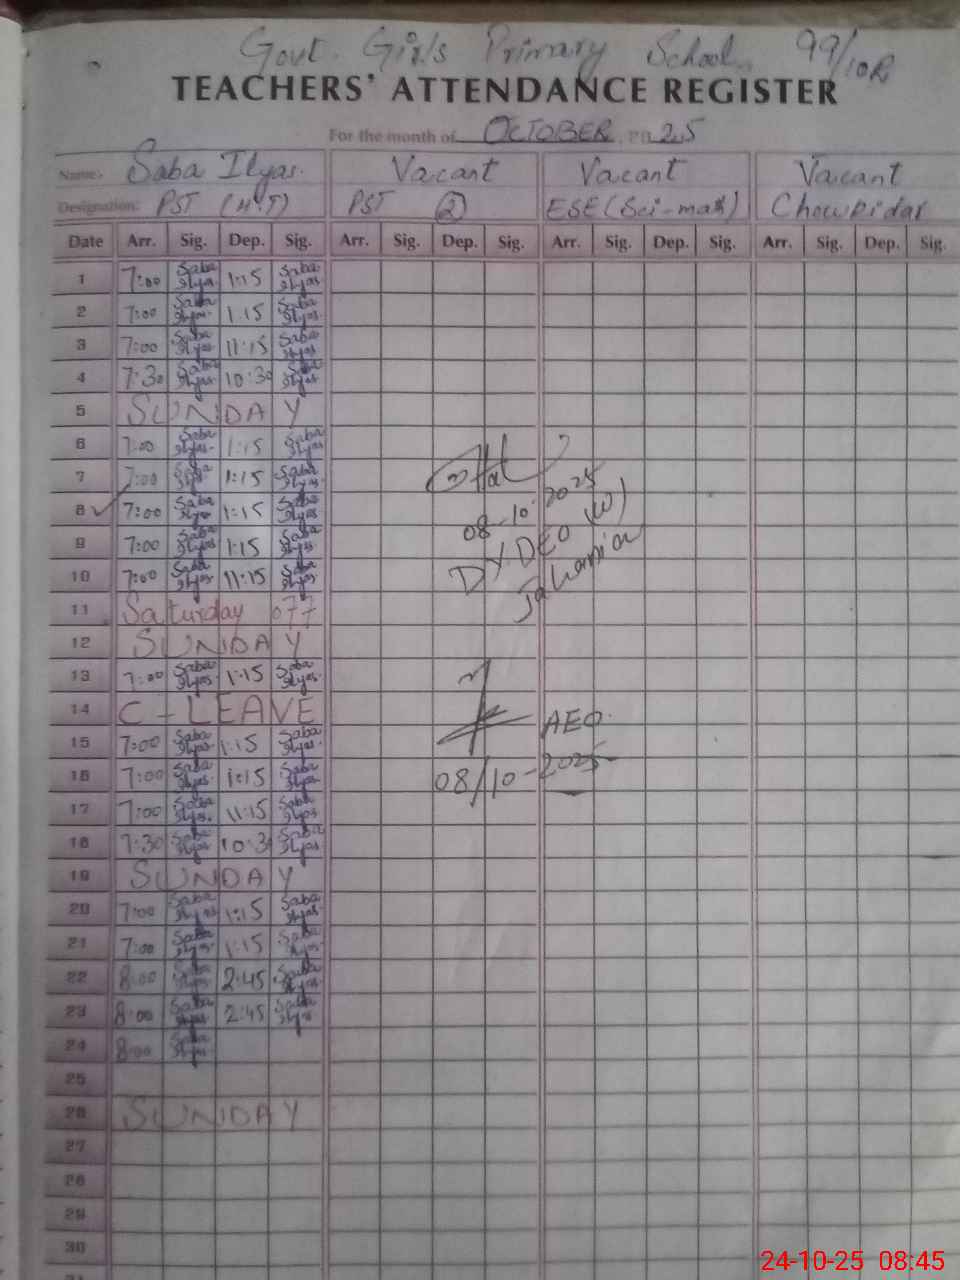 Govt. Girls Primary School 99/10R
TEACHERS' ATTENDANCE REGISTER
For the month of OCTOBER 2025
Name: Saba Ilyas. Vacant Vacant Vacant
Designation: PST (H.T) PST (2) ESE (Sci-math) Chowkidar
Date Arr. Sig. Dep. Sig. Arr. Sig. Dep. Sig. Arr. Sig. Dep. Sig. Arr. Sig. Dep. Sig.
1 7:00 Saba Ilyas 1:15 Saba Ilyas
2 7:00 Saba Ilyas 1:15 Saba Ilyas
3 7:00 Saba Ilyas 11:15 Saba Ilyas
4 7:30 Saba Ilyas 10:30 Saba Ilyas
5 SUNDAY
6 7:00 Saba Ilyas 1:15 Saba Ilyas
7 7:00 Saba Ilyas 1:15 Saba Ilyas
8 7:00 Saba Ilyas 1:15 Saba Ilyas
08-10-2025
DY.DEO (W)
Jahanian
9 7:00 Saba Ilyas 1:15 Saba Ilyas
10 7:00 Saba Ilyas 11:15 Saba Ilyas
11 Saturday off
12 SUNDAY
13 7:00 Saba Ilyas 1:15 Saba Ilyas
14 C-LEAVE
AEO.
15 7:00 Saba Ilyas 1:15 Saba Ilyas
16 7:00 Saba Ilyas 1:15 Saba Ilyas
08/10-2025
17 7:00 Saba Ilyas 11:15 Saba Ilyas
18 7:30 Saba Ilyas 10:30 Saba Ilyas
19 SUNDAY
20 7:00 Saba Ilyas 1:15 Saba Ilyas
21 7:00 Saba Ilyas 1:15 Saba Ilyas
22 8:00 Saba Ilyas 2:45 Saba Ilyas
23 8:00 Saba Ilyas 2:45 Saba Ilyas
24 8:00 Saba Ilyas
25
26 SUNDAY
27
28
29
30
31
24-10-25 08:45